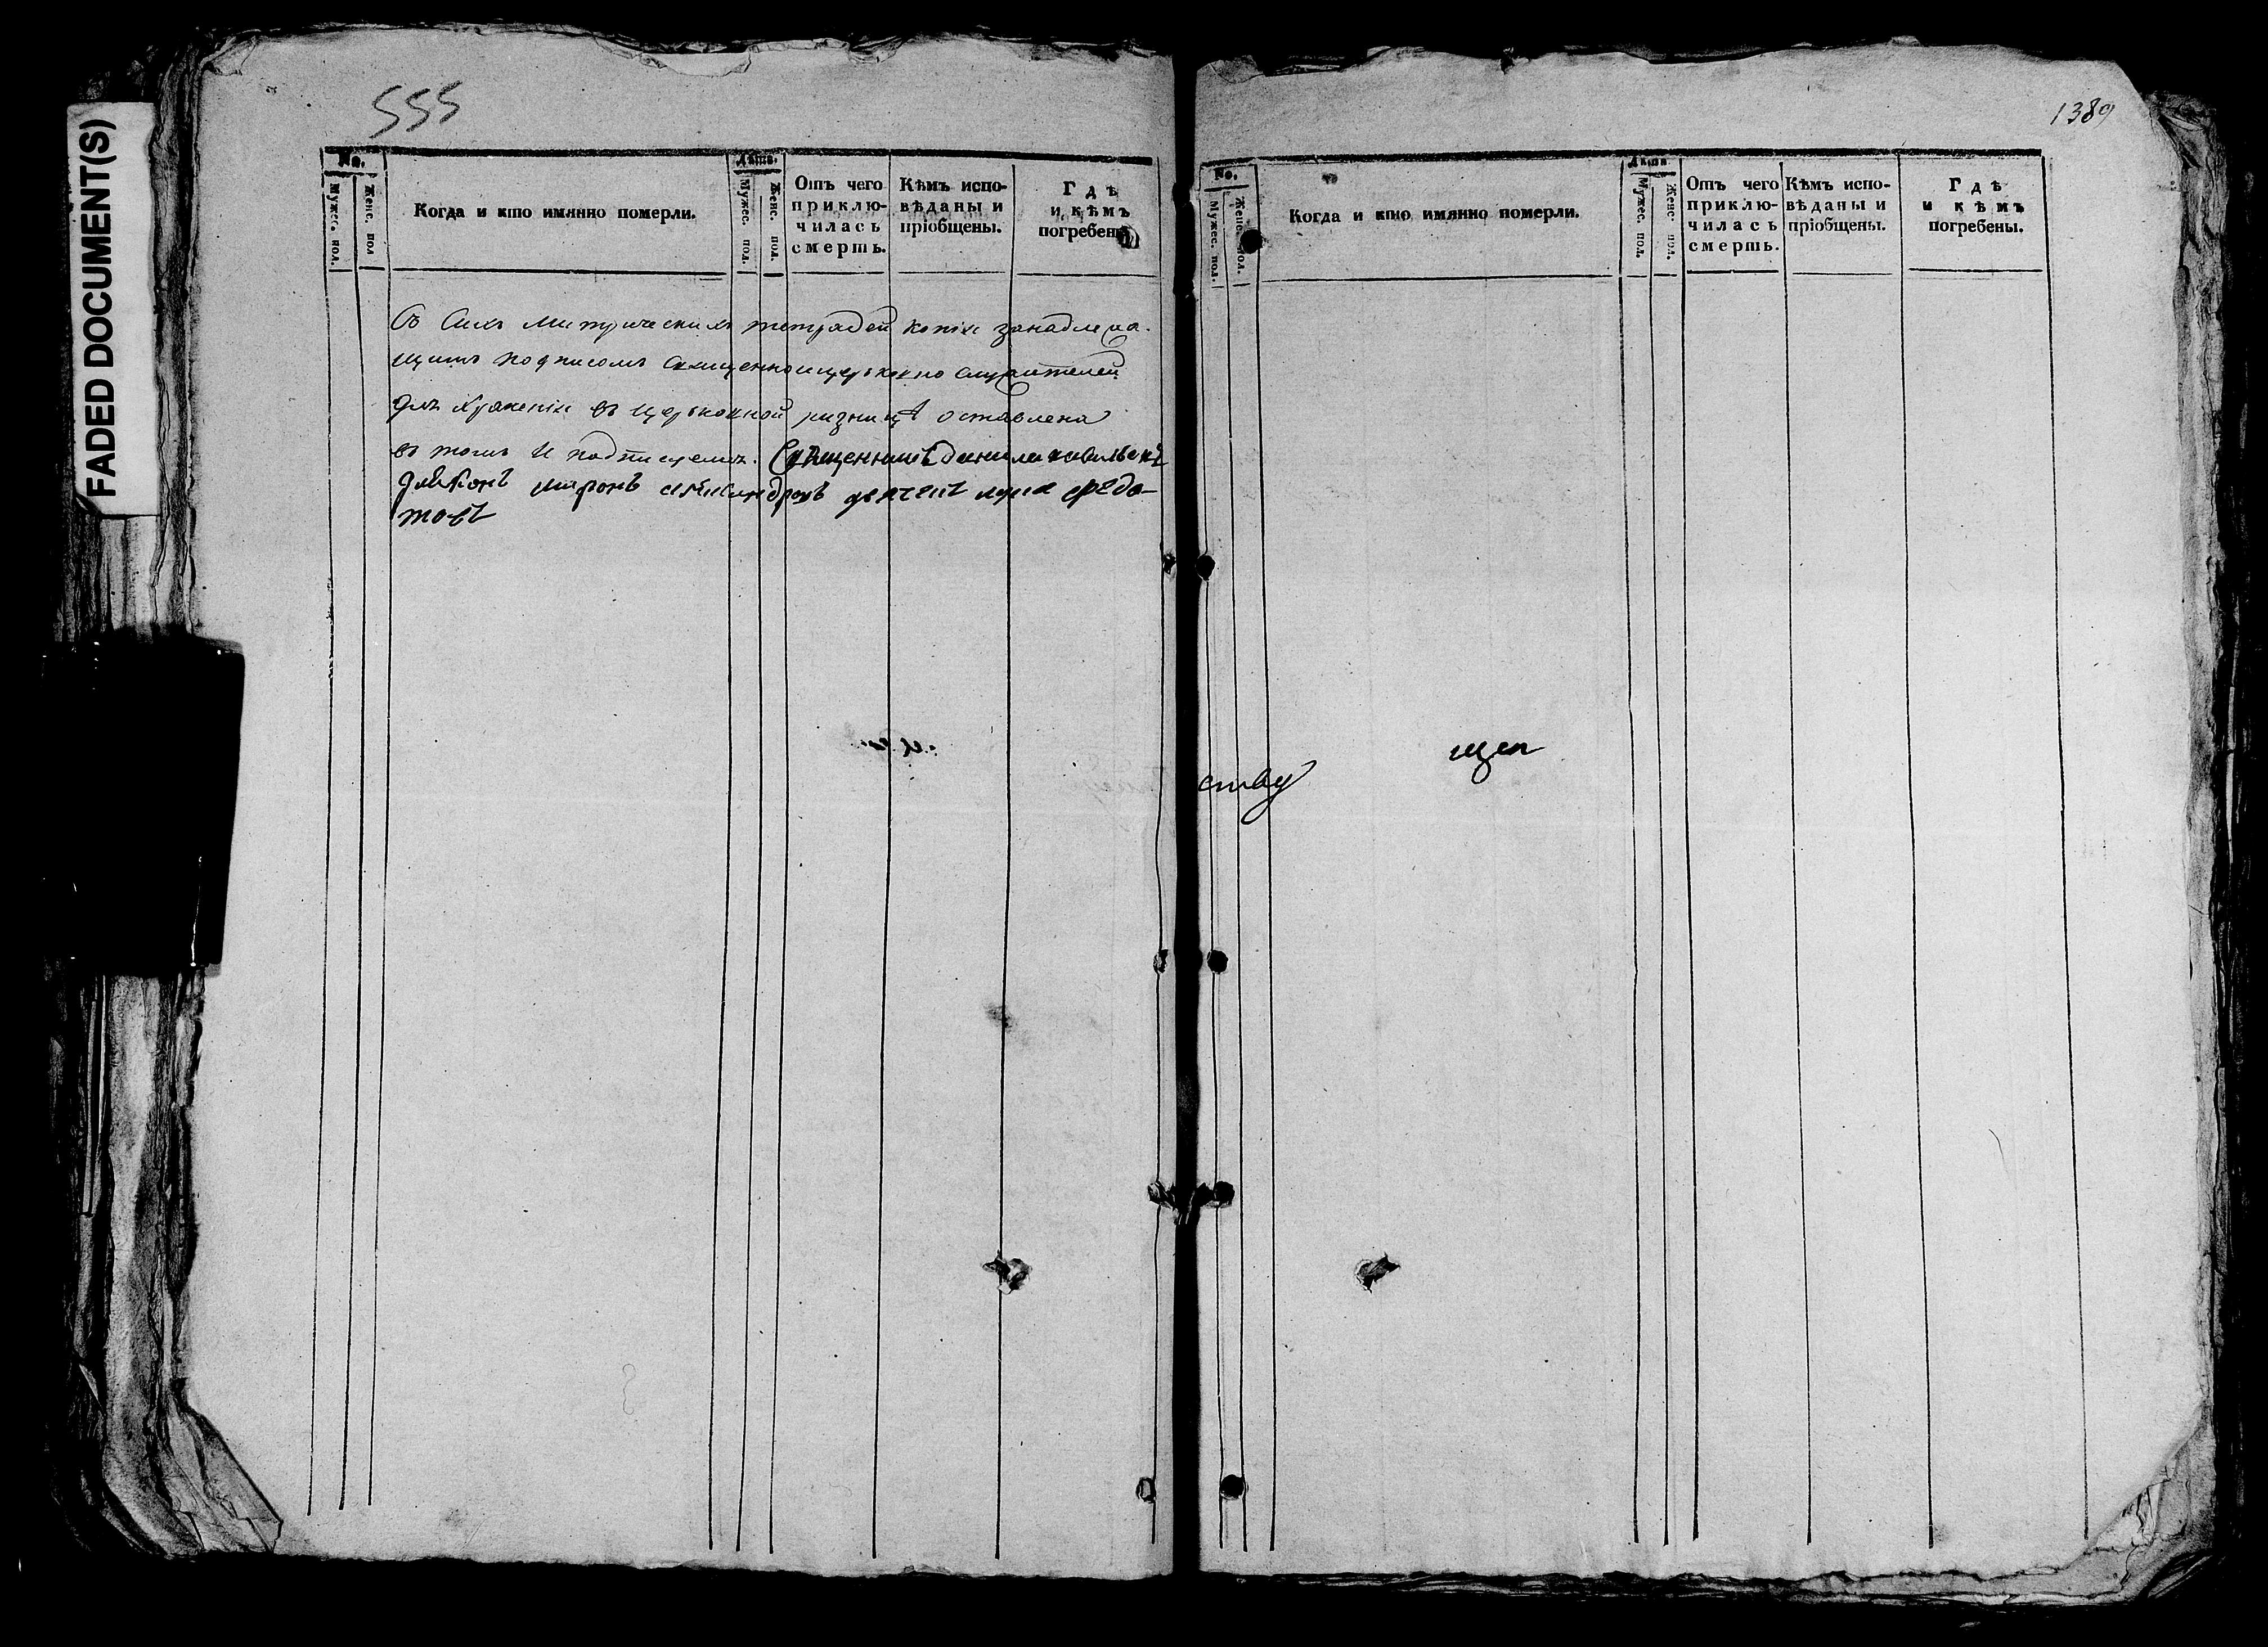 FADED DOCUMENT(S)
555
No.
Мужес. пол.
Женс. пол
Когда и кто имянно померли.
Лѣта.
Мужес. пол.
Женс. пол.
Отъ чего приклю-
чилась
смерть.
Кѣмъ испо-
вѣданы и
пріобщены.
Гдѣ
и кѣмъ
погребены
Съ Сихъ Митрическихъ тетрадей копіи занадлежа-
щимъ подписомъ священноицерковно служителей
для храненія въ церковной ризницѣ оставлена
въ томъ и подписуемся. Священникъ Данила
діяконъ миронъ александровъ дьячекъ лука федо-
товъ
1389
No.
Мужес. пол.
Женс. пол.
Когда и кто имянно померли.
Лѣта
Мужес. пол.
Женс. пол.
Отъ чего
приклю-
чилась
смерть.
Кѣмъ испо-
вѣданы и
пріобщены.
Гдѣ
и кѣмъ
погребены.
щен
ству